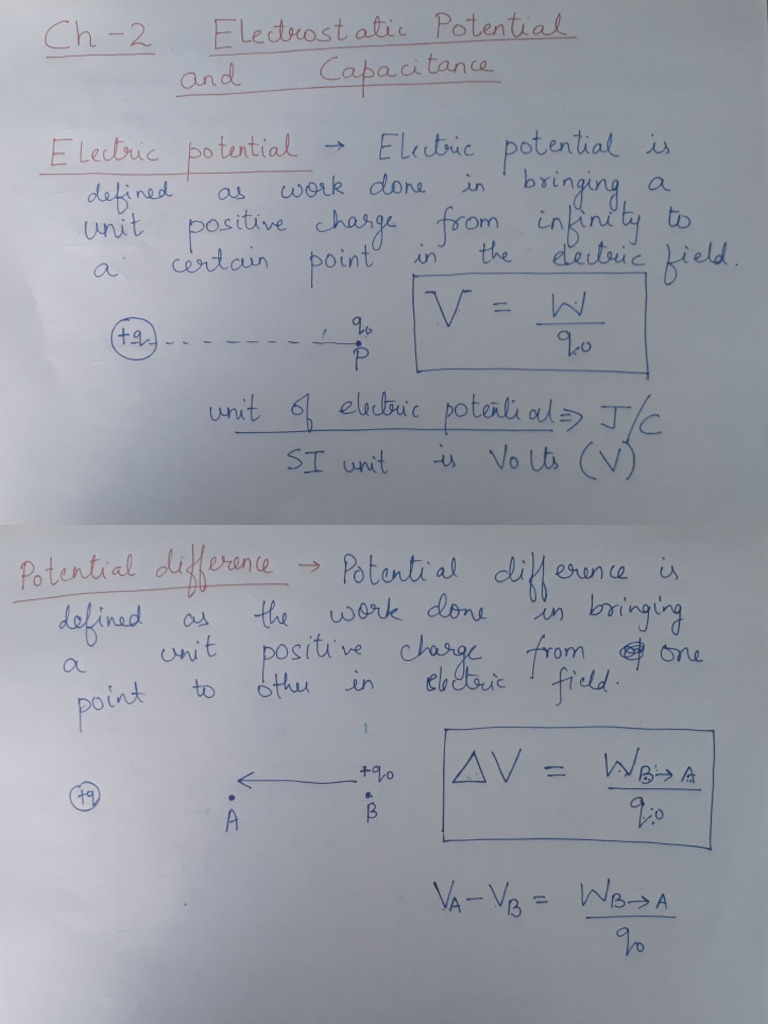 Ch-2 Electrostatic Potential
and Capacitance
Electric potential → Electric potential is
defined as work done in bringing a
unit positive charge from infinity to
a certain point in the electric field.
V = W/q₀
+q q₀
P
unit of electric potential ⇒ J/C
SI unit is Volts (V)
Potential difference → Potential difference is
defined as the work done in bringing
a unit positive charge from one
point to other in electric field.
ΔV = W_B→A/q₀
+q +q₀
A B
V_A – V_B = W_B→A/q₀